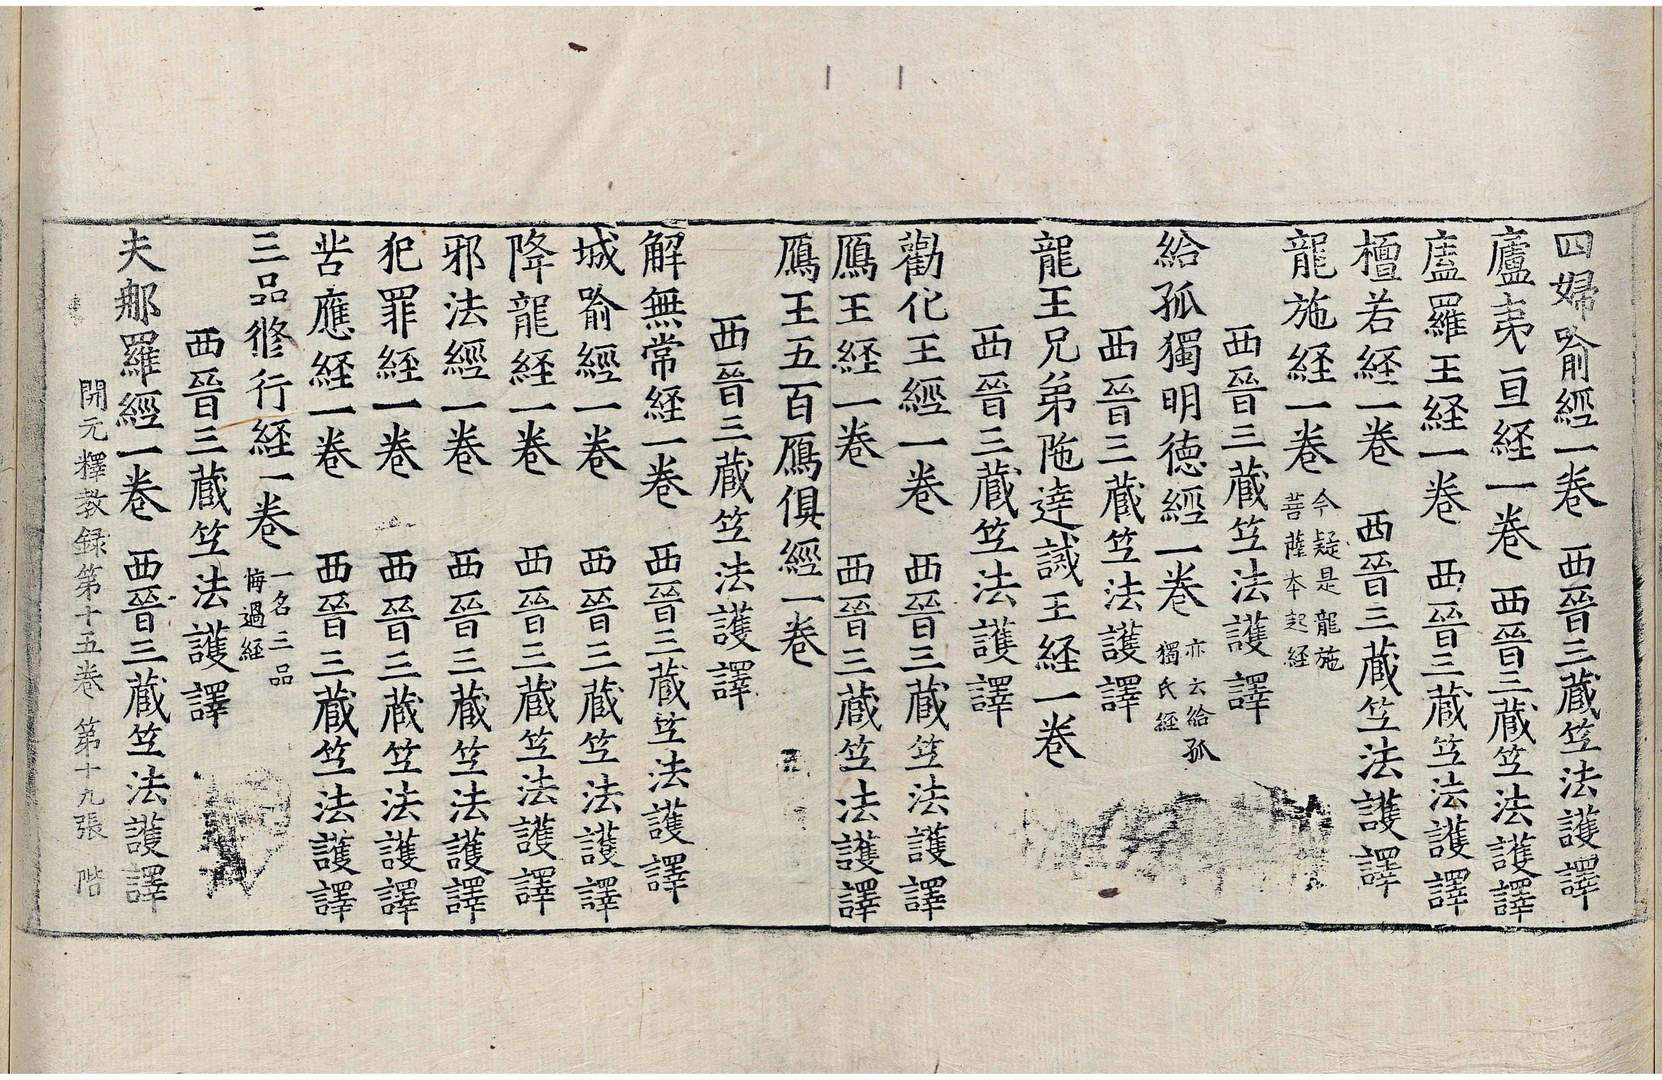 四婦喻經一卷　西晉三藏竺法護譯
廬夷亘経一卷　西晉三藏竺法護譯
盧羅王経一卷　西晉三藏竺法護譯
檀若経一卷　西晉三藏竺法護譯
龍施経一卷　今疑是龍施
菩薩本起経
西晉三藏竺法護譯
給孤獨明徳經一卷　亦云給孤
獨氏經
西晉三藏竺法護譯
龍王兄弟陁達誡王経一卷
西晉三藏竺法護譯
勸化王經一卷　西晉三藏竺法護譯
鴈王経一卷　西晉三藏竺法護譯
鴈王五百鴈俱經一卷
西晉三藏竺法護譯
解無常経一卷　西晉三藏竺法護譯
城喻經一卷　西晉三藏竺法護譯
降龍経一卷　西晉三藏竺法護譯
邪法經一卷　西晉三藏竺法護譯
犯罪経一卷　西晉三藏竺法護譯
苦應経一卷　西晉三藏竺法護譯
三品修行経一卷　一名三品
悔過経
西晉三藏竺法護譯
夫那羅經一卷　西晉三藏竺法護譯
開元釋教録第十五卷　第十九張　階